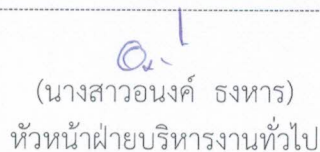 (นางสาวอนงค์ ธงหาร)
หัวหน้าฝ่ายบริหารงานทั่วไป